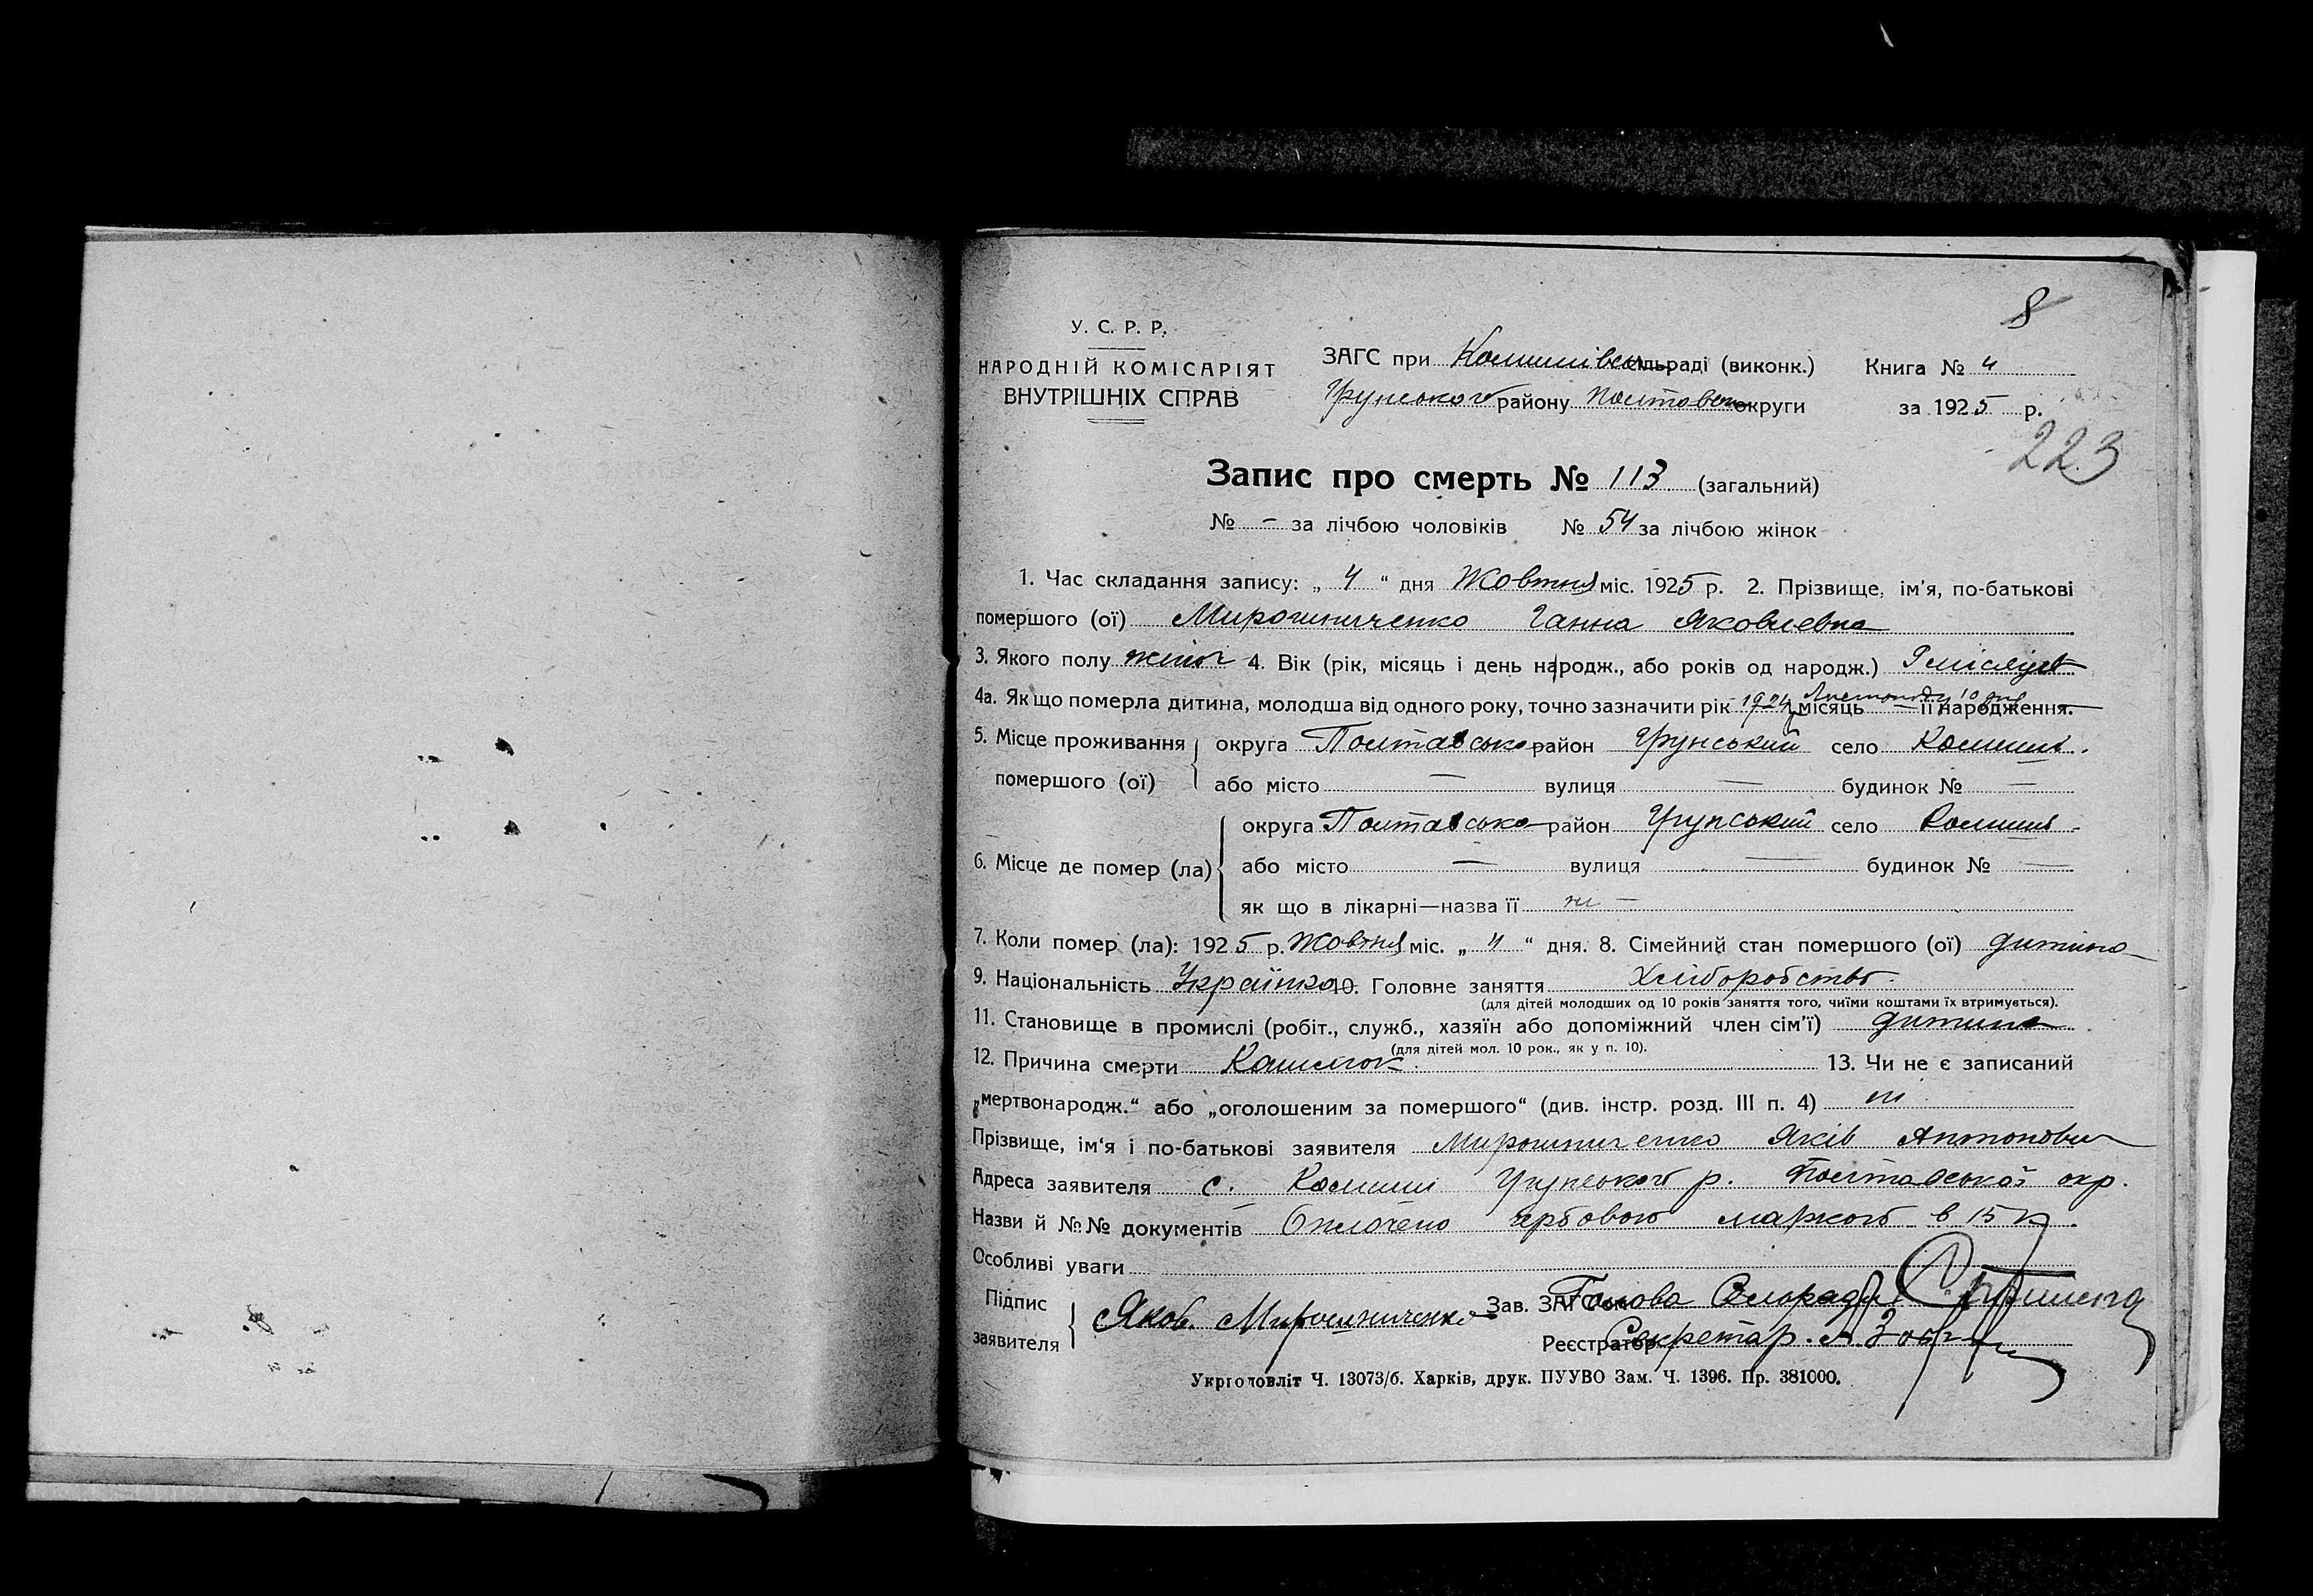 8
У. С. Р. Р.
НАРОДНІЙ КОМІСАРІЯТ
ВНУТРІШНІХ СПРАВ
ЗАГС при Комишівськ сільраді (виконк.) Книга № 4
Грунського району Полтавськ округи за 1925 р.
223
Запис про смерть № 113 (загальний)
№ – за лічбою чоловіків № 54 за лічбою жінок
1. Час складання запису: „ 4 “ дня Жовтня міс. 1925 р. 2. Прізвище, ім'я, по-батькові
помершого (ої) Мирошниченко Ганна Яковлевна
3. Якого полу жіноч 4. Вік (рік, місяць і день народж., або років од народж.) місяців
4а. Як що померла дитина, молодша від одного року, точно зазначити рік 1924 місяць Листопаду 10 дня її народження.
5. Місце проживання округа Полтавська район Грунський село Комиші.
помершого (ої) або місто — вулиця — будинок № —
округа Полтавська район Грунський село Комиші.
6. Місце де помер (ла) або місто — вулиця — будинок № —
як що в лікарні—назва її ні —
7. Коли помер (ла): 1925 р. Жовтня міс. „ 4 “ дня. 8. Сімейний стан помершого (ої) дитина
9. Національність Українка 10. Головне заняття Хліборобство.
(для дітей молодших од 10 років заняття того, чиїми коштами їх втримується).
11. Становище в промислі (робіт., служб., хазяїн або допоміжний член сім'ї) дитина
(для дітей мол. 10 рок., як у п. 10).
12. Причина смерти Кашлюк. 13. Чи не є записаний
„мертвонародж.“ або „оголошеним за помершого“ (див. інстр. розд. III п. 4) ні
Прізвище, ім'я і по-батькові заявителя Мирошниченко Яків Антонович
Адреса заявителя с. Комиші Грунського р. Полтавської окр.
Назви й №№ документів Оплочено гербовою маркою в 15 к.
Особливі уваги
Підпис
заявителя Яков. Мирошниченко
Зав. ЗАГС'ом Голова Сільради
Реєстратор Секретар.
Укрголовліт Ч. 13073/б. Харків, друк. ПУУВО Зам. Ч. 1396. Пр. 381000.